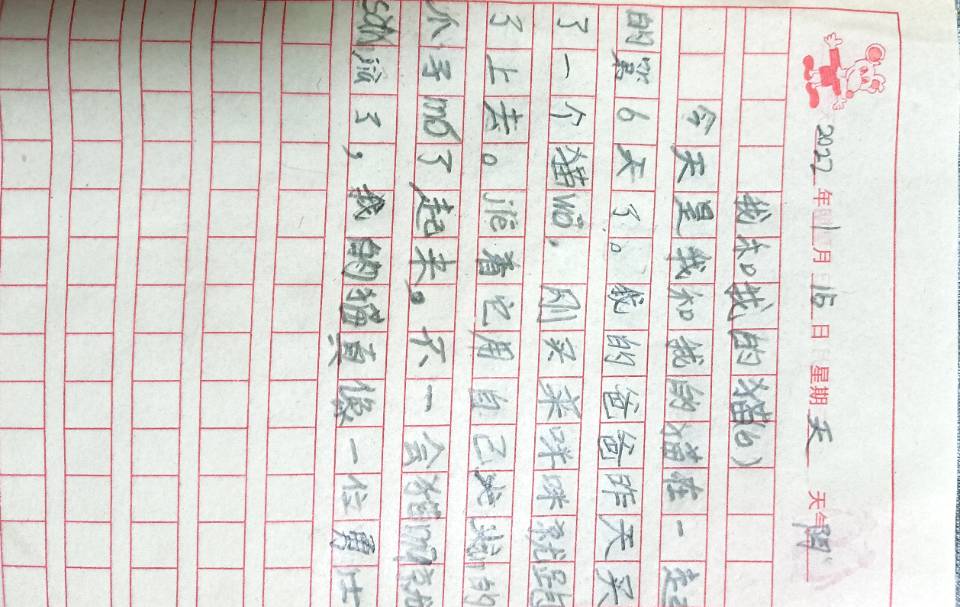 2022年1月16日 星期天 天气阴
我和我的猫(6)
今天是我和我的猫在一起
的第6天了。我的爸爸昨天买
了一个猫wō,刚买来咪咪就跑
了上去。jiē着它用自己的
小手mō了起来。不一会猫
了,我的猫真像一位勇士